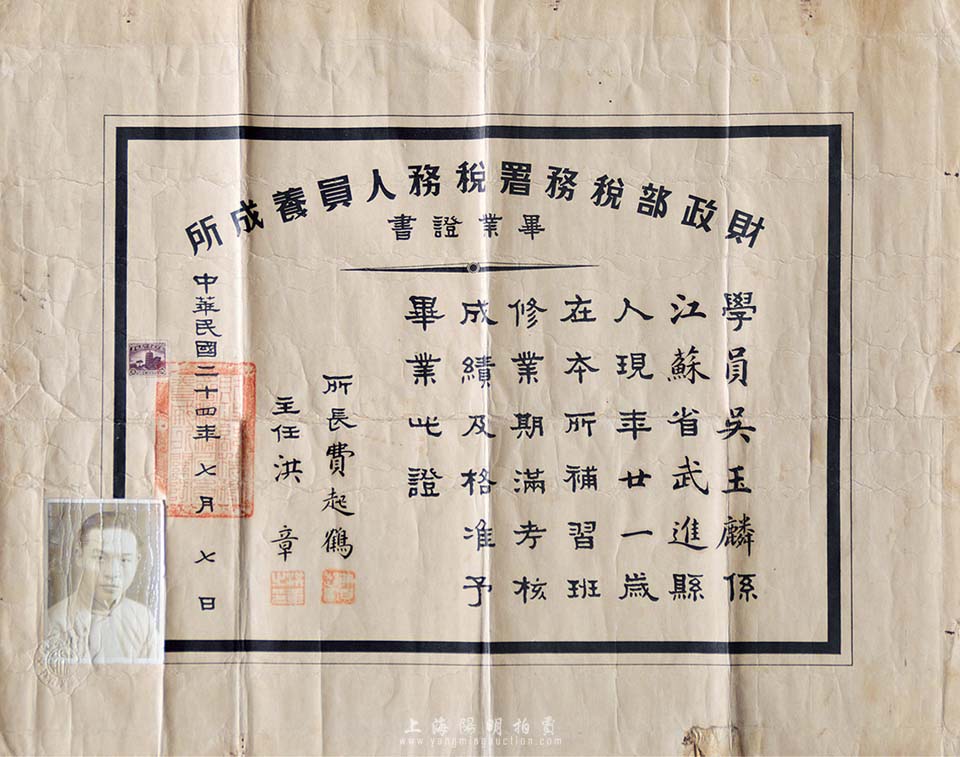 財政部稅務署稅務人員養成所
畢業證書
學員吳玉麟係
江蘇省武進縣
人現年廿一歲
在本所補習班
修業期滿考核
成績及格准予
畢業此證
所長費起鶴
主任洪章
中華民國二十四年七月七日
上海陽明拍賣
www.yangmingauction.com